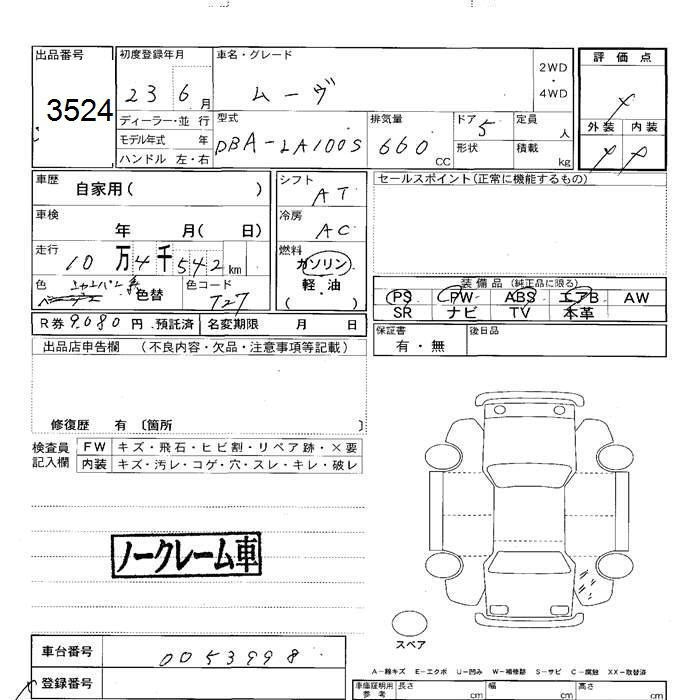 出品番号
3524
初度登録年月
23 6 月
車名・グレード
ムーヴ
2WD
・
4WD
評価点
外装 内装
ディーラー・並 行
モデル年式 年
ハンドル 左・右
型式
DBA-LA100S
排気量
660 CC
ドア 5
形状
定員 人
積載 kg
車歴
自家用( )
車検
年 月( 日)
走行
10万4千542km
色
シャンパン系
色替
色コード
T27
シフト
AT
冷房
AC
燃料
ガソリン
軽・油
( )
セールスポイント(正常に機能するもの)
装備品 (純正品に限る)
PS PW ABS エアB AW
SR ナビ TV 本革
R券 9,080 円 預託済 名変期限 月 日
保証書
有・無
後日品
出品店申告欄 (不良内容・欠品・注意事項等記載)
修復歴 有 〔箇所 〕
検査員
記入欄
FW キズ・飛石・ヒビ割・リペア跡・×要
内装 キズ・汚レ・コゲ・穴・スレ・キレ・破レ
ノークレーム車
スペア
車台番号
0053998
登録番号
A-線キズ E-エクボ U-凹み W-補修跡 S-サビ C-腐蝕 XX-取替済
車庫証明用
参考
長さ cm 幅 cm 高さ cm